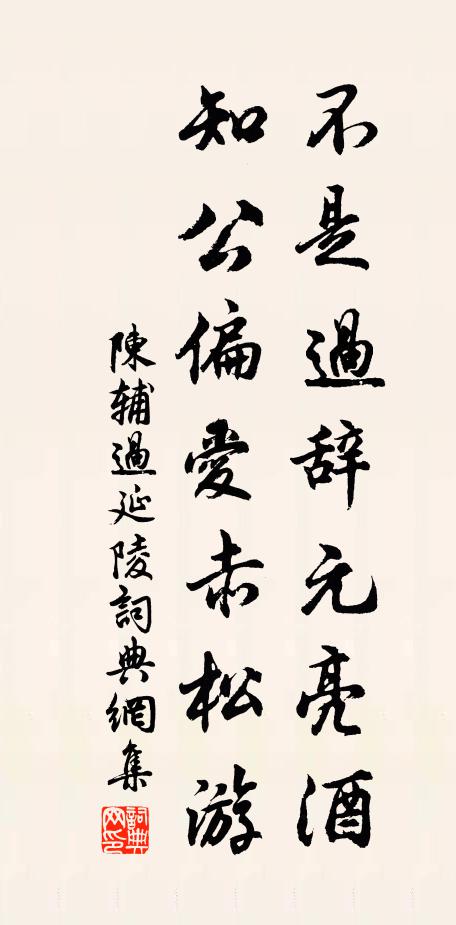 不是過辞元亮酒
知公偏愛赤松游
陳辅過延陵詞典網集
詞典网印